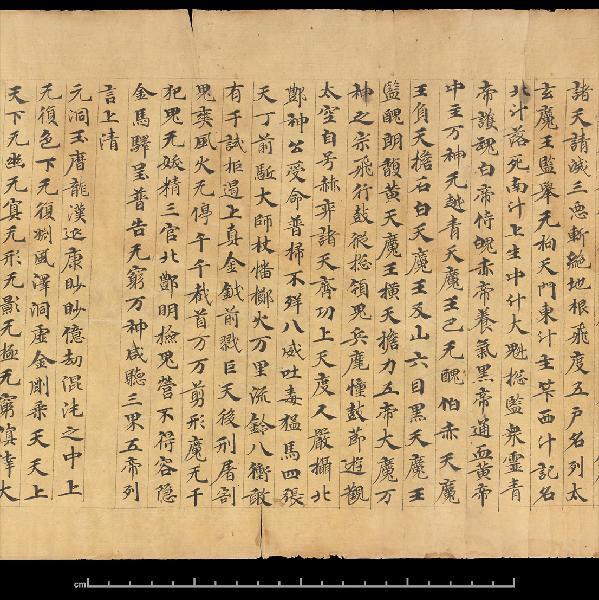 諸天請滅三惡斬絕地根飛度五戶名列太
玄魔王監舉无拘天門東斗主筭西斗記名
北斗落死南斗上生中斗大魁揔監衆靈青
帝護魂白帝侍魄赤帝養氣黑帝通血黃帝
中主万神无越青天魔王巴无醜伯赤天魔
王負天擔石白天魔王反山六目黑天魔王
監醜朗馥黃天魔王橫天擔力五帝大魔万
神之宗飛行鼓從揔領鬼兵麾幢鼓節遊觀
太空自号赫弈諸天齊功上天度人嚴攝北
酆神公受命普掃不祥八威吐毒猛馬四張
天丁前駈大師杖幡擲火万里流鈴八衝敢
有干試拒遏上真金鉞前戮巨天後刑屠割
鬼爽風火无停千千截首万万剪形魔无干
犯鬼无妖精三官北酆明檢鬼營不得容隱
金馬驛呈普告无窮万神咸聽三界五帝列
言上清
元洞玉曆龍漢延康眇眇億劫混沌之中上
无復色下无復淵風澤洞虛金剛乘天天上
天下无幽无冥无形无影无極无窮溟涬大